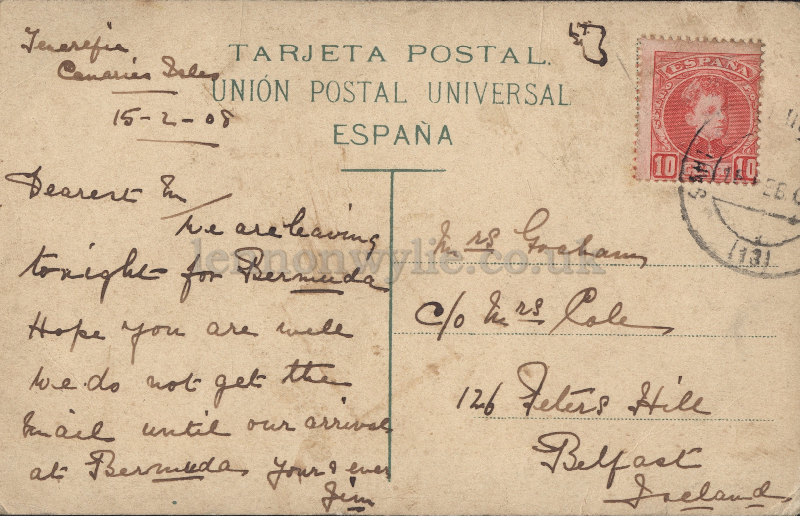 Tenerife
Canaries Isles
15-2-08
TARJETA POSTAL.
UNIÓN POSTAL UNIVERSAL
ESPAÑA
Dearest M
We are leaving
tonight for Bermuda
Hope you are well
We do not get the
Mail until our arrival
at Bermuda yours ever
Jim
ESPAÑA
10 10
(13)
Mrs Graham
c/o Mrs Cole
126 Peters Hill
Belfast
Ireland
lennonwylie.co.uk